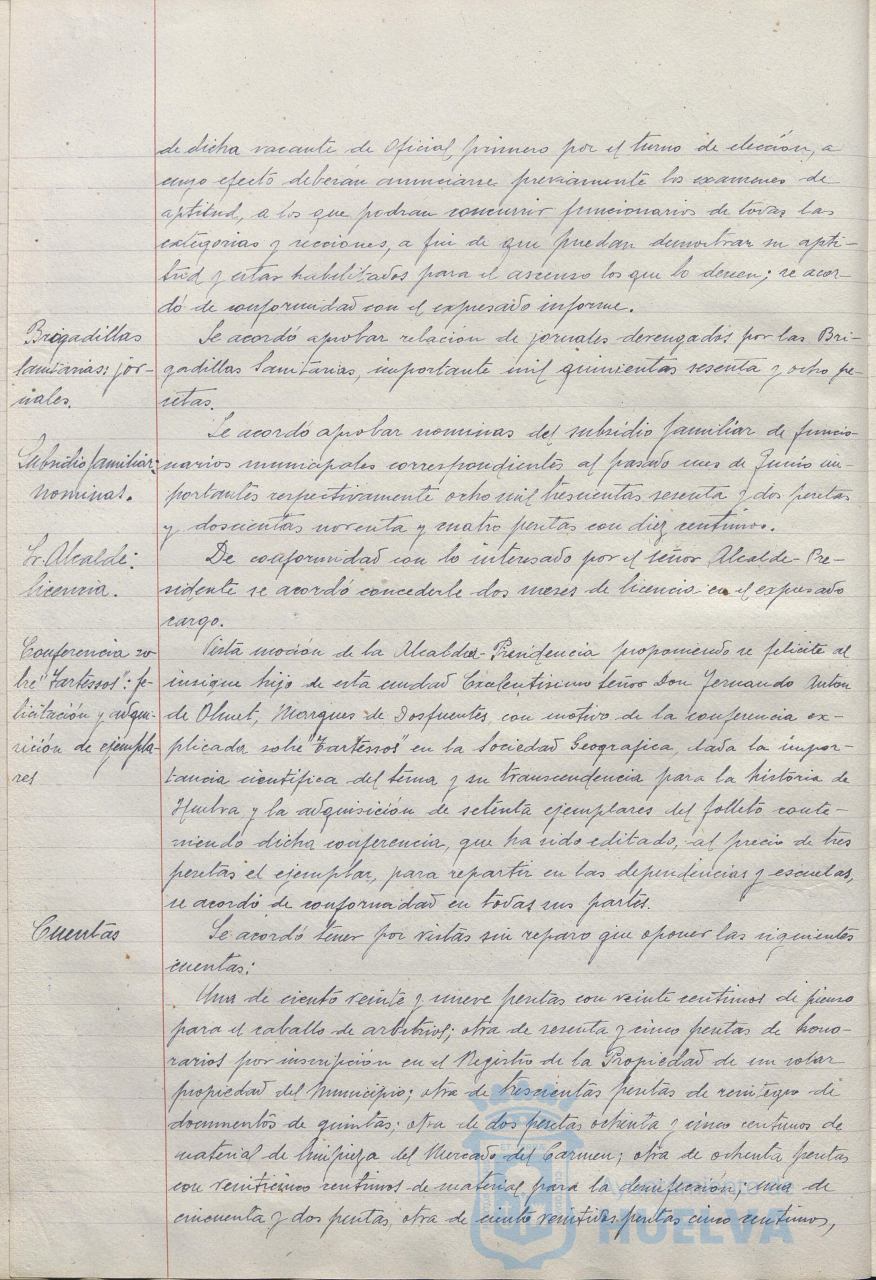 de dicha vacante de Oficial primero por el turno de elección, a
cuyo efecto deberán anunciarse previamente los examenes de
aptitud, a los que podran concurrir funcionarios de todas las
categorias y secciones, a fin de que puedan demostrar su apti-
tud y estar habilitados para el ascenso los que lo deseen; se acor-
dó de conformidad con el expresado informe.
Brigadillas
Sanitarias: jor-
nales.
Se acordó aprobar relación de jornales devengados por las Bri-
gadillas Sanitarias, importante mil quinientas sesenta y ocho pe-
setas.
Subsidio familiar:
nominas.
Se acordó aprobar nominas del subsidio familiar de funcio-
narios municipales correspondientes al pasado mes de Junio im-
portantes respectivamente ocho mil trescientas sesenta y dos pesetas
y doscientas noventa y cuatro pesetas con diez centimos.
Sr. Alcalde:
licencia.
De conformidad con lo interesado por el señor Alcalde-Pre-
sidente se acordó concederle dos meses de licencia en el expresado
cargo.
Conferencia so
bre "Tartessos": fe-
licitación y adqui-
sición de ejempla-
res
Vista moción de la Alcaldia-Presidencia proponiendo se felicite al
insigne hijo de esta ciudad Excelentisimo Señor Don Fernando Anton
de Olmet, Marques de Dosfuentes, con motivo de la conferencia ex-
plicada sobre "Tartessos" en la Sociedad Geografica, dada la impor-
tancia cientifica del tema y su transcendencia para la historia de
Huelva y la adquisición de setenta ejemplares del folleto conte-
niendo dicha conferencia, que ha sido editado, al precio de tres
pesetas el ejemplar, para repartir en las dependencias y escuelas,
se acordó de conformidad en todas sus partes.
Cuentas
Se acordó tener por vistas sin reparo que oponer las siguientes
cuentas:
Una de ciento veinte y nueve pesetas con veinte centimos de pienso
para el caballo de arbitrios; otra de sesenta y cinco pesetas de hono-
rarios por inscripción en el Registro de la Propiedad de un solar
propiedad del Municipio; otra de trescientas pesetas de reintegro de
documentos de quintas; otra de dos pesetas ochenta y cinco centimos de
material de limpieza del Mercado del Carmen; otra de ochenta pesetas
con veinticinco centimos de material para la desinfección; una de
cincuenta y dos pesetas, otra de ciento veintidos pesetas cinco centimos,
Ayuntamiento de
HUELVA